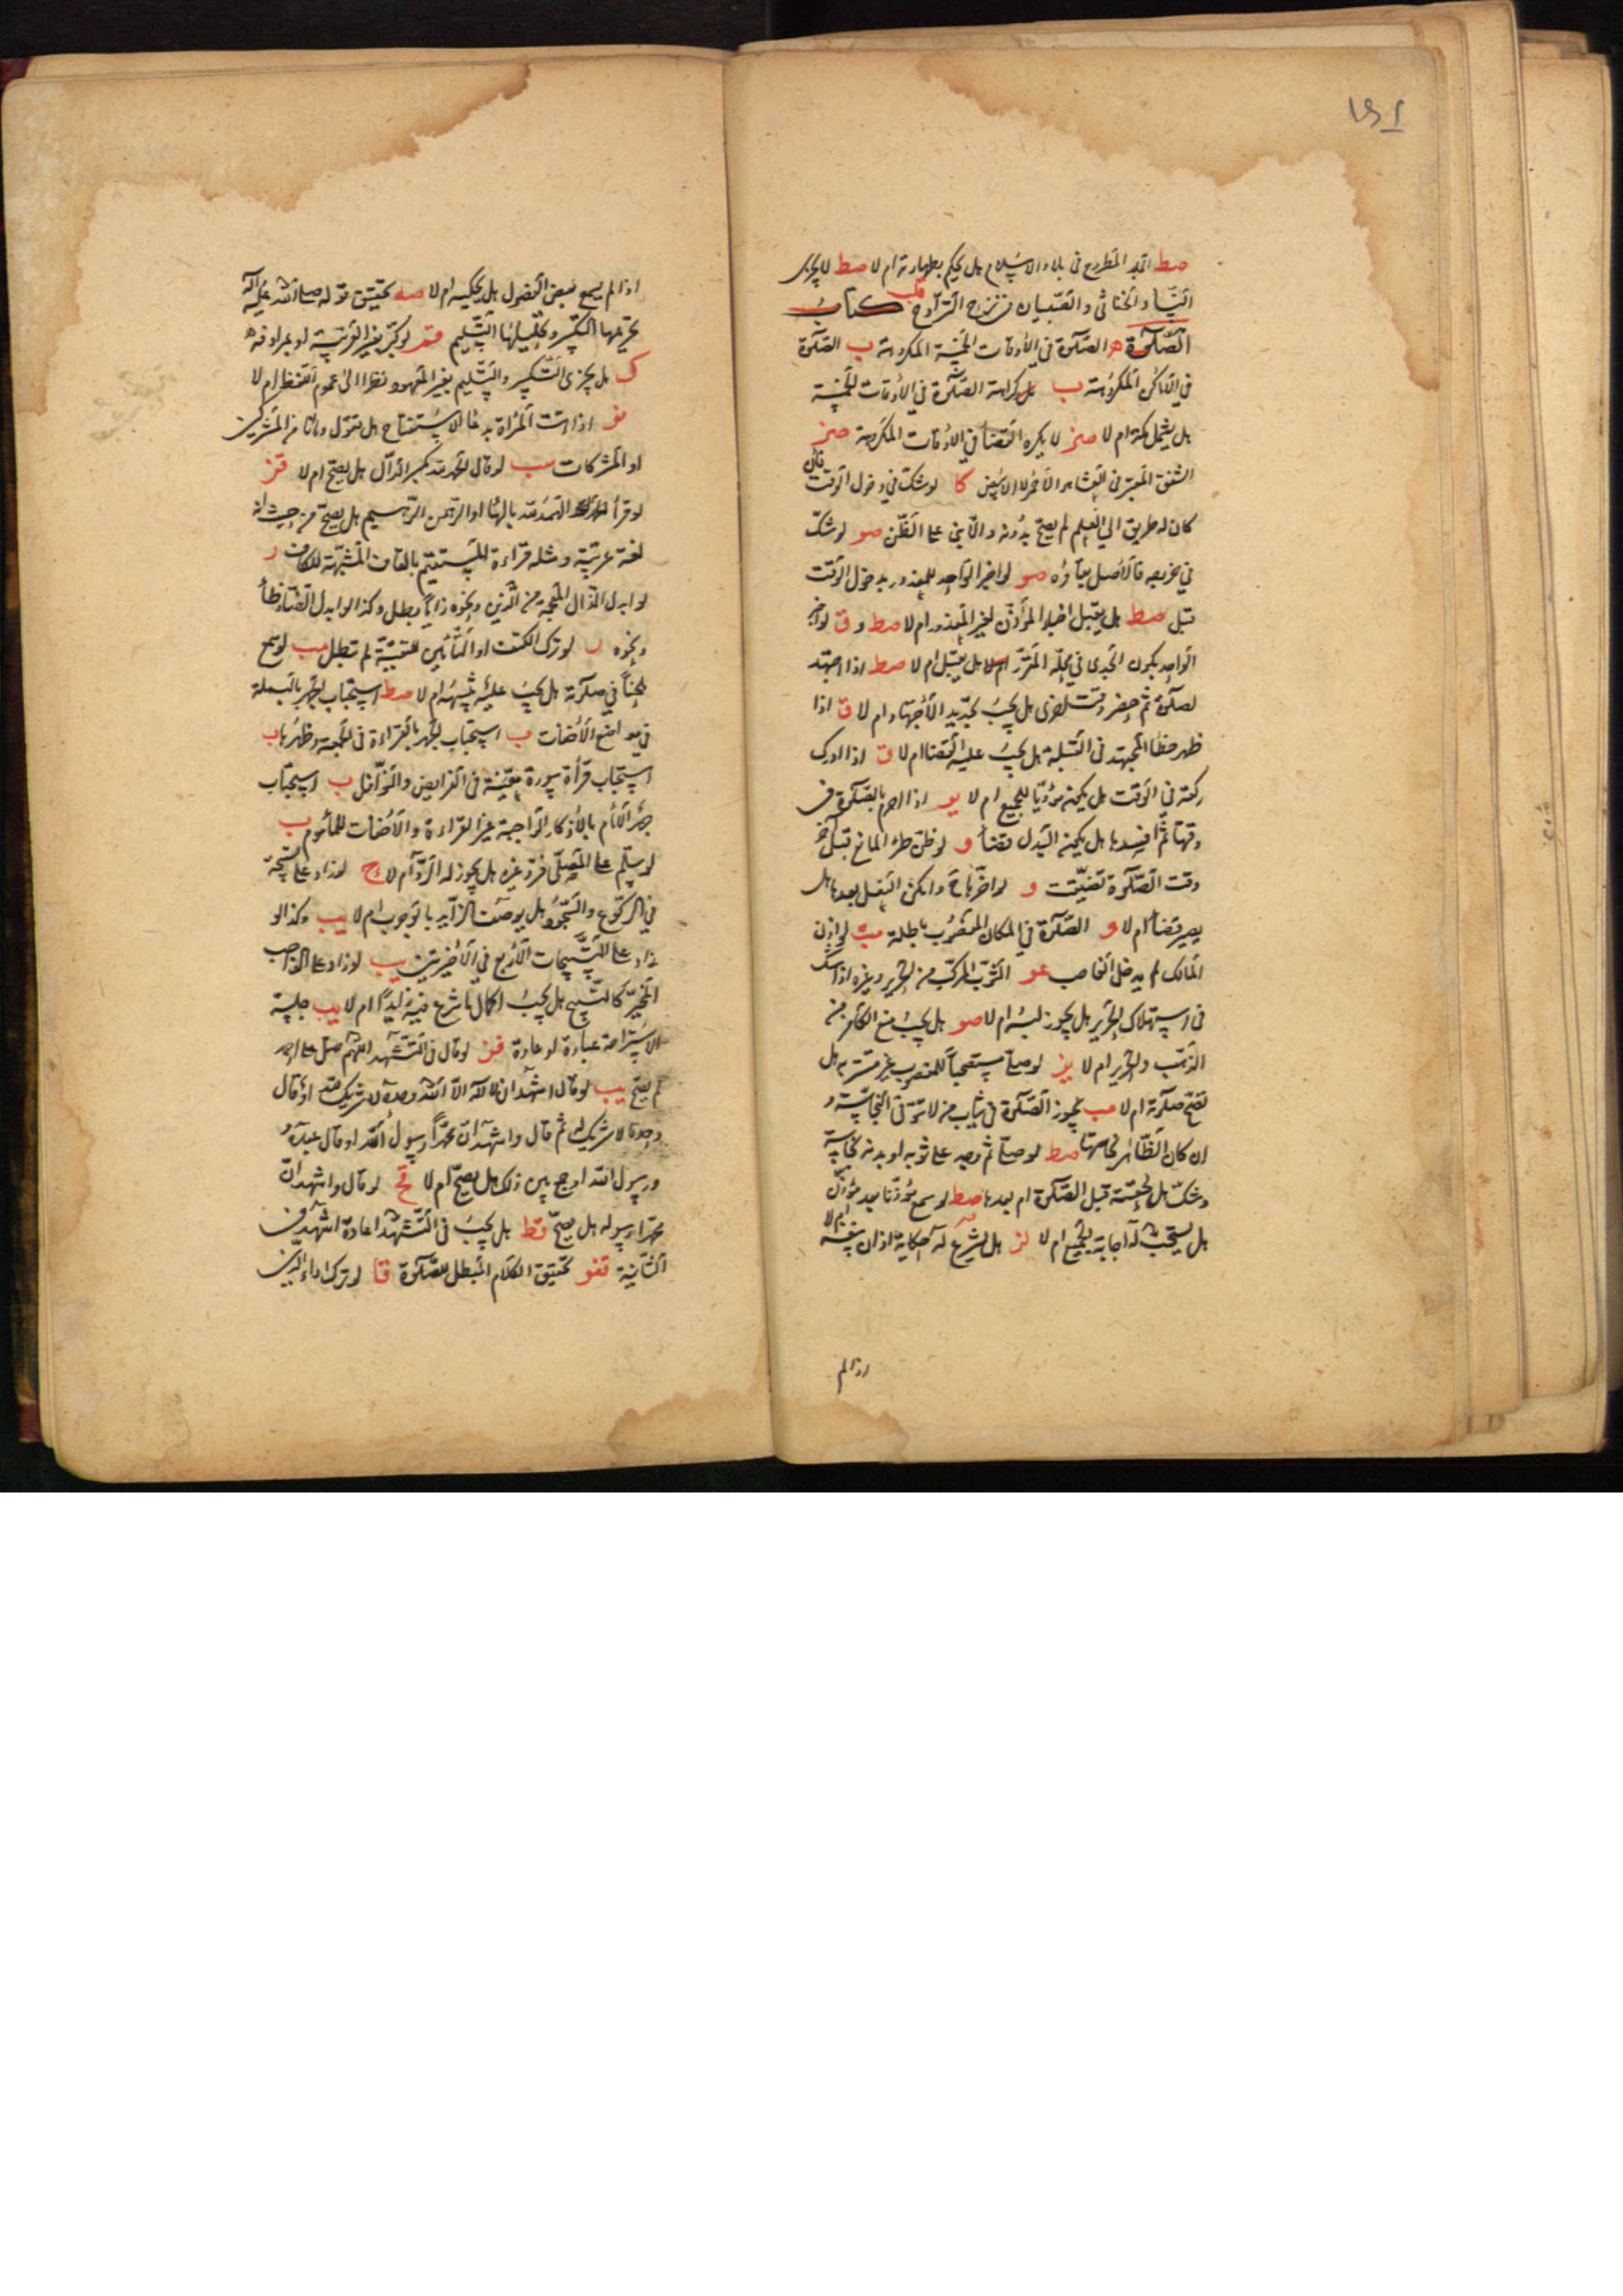 ١٥١
صط الجلد المطروح في بلاد الاسلام هل يحكم بطهارته ام لا صط لا يجزى
النساء والخناثى والصبيان في نزح التراوح كتاب
الصلوة الصلوة في الأوقات الخمسة المكروهة ب الصلوة
في الاماكن المكروهة ب هل كراهة الصلوة في الاوقات الخمسة
هل يشمل مكة ام لا صز لا يكره القضاء في الاوقات المكروهة صز
الشفق المعتبر في العشاء هو الأحمر لا الابيض كا لو شك في دخول الوقت فان
كان له طريق الى العلم لم يصح بدونه والا بنى على الظن صو لو شك
في خروجه فالاصل بقاؤه صو لو اخبر الواحد للمعذور بدخول الوقت
قبل صط هل يقبل اخبار المؤذن لغير المعذور ام لا صط و ق لو اخبر
الواحد بكون الجدى في محله المقرر هل يقبل ام لا صط اذا اجتهد
لصلوة ثم حضر وقت اخرى هل يجب تجديد الأجتهاد ام لا ق اذا
ظهر خطا المجتهد في القبلة هل يجب عليه القضا ام لا ق اذا ادرك
ركعة في الوقت هل يكون مؤديا للجميع ام لا يو اذا احرم بالصلوة في
وقتها ثم افسدها هل يكون البدل قضاء و لو ظن طرء المانع قبل آخر
وقت الصلوة تضيقت و لو اخرها وامكن الفعل بعدها هل
يصير قضاء ام لا و الصلوة في المكان المغصوب باطلة مب لو اذن
المالك لم يدخل الغاصب عو الثوب المركب من الحرير وغيره اذا شك
في استهلاك الحرير هل يجوز لبسه ام لا صو هل يجب منع الكافر من
الذهب والحرير ام لا يز لو صلى مستصحباً للمغصوب غير مستتر به هل
تصح صلوته ام لا مب يجوز الصلوة في ثياب من لا يتوقى النجاسة و
ان كان الظاهر نجاستها صط لو صلى ثم وجد على ثوبه او بدنه نجاسة
وشك هل لحقته قبل الصلوة ام بعدها صط لو سمع مؤذنا بعد مؤذن
هل يستحب له اجابة الجميع ام لا لز هل يشرع له حكاية اذان نفسه ام لا
اذا لم
اذا لم يسمع بعض الفصول هل يحكيه ام لا صه تحقيق قوله صلى الله عليه وآله
تحريمها التكبير وتحليلها التسليم قد لو كبر بغير العربية او بمرادفه
ك هل يجزى التكبير والتسليم بغير المعهود نظرا الى عموم اللفظ ام لا
اذا اتت المرأة بدعاء الاستفتاح هل تقول وما انا من المشركين
او المشركات سب لو قال الحمد لله بكسر الدال هل يصح ام لا قز
لو قرأ الحمد لله بالهاء او الرهمن الرهيم هل يصح من حيث انه
لغة عربية ومثله قراءة المستقيم بالقاف المشبهة للكاف ر
لو ابدل الذال المعجمة من الذين ونحوه زاياً بطل وكذا لو ابدل الضاد ظاء
ونحوه ر لو ترك الكتف او التأمين للتقية لم تبطل مب لو سمع
لحناً في صلوته هل يجب عليه تنبيهه ام لا صط استحباب الجهر بالبسملة
في مواضع الأخفات ب استحباب الجهر بالقراءة في الجمعة وظهرها ب
استحباب قرأة سورة معينة في الفرايض والنوافل ب استحباب
جهر الأمام بالأذكار الواجبة غير القراءة والأخفات للمأموم ب
لو سلم على المصلى فرد غيره هل يجوز له الرد ام لا ج لو زاد على تسبيحة
في الركوع والسجود هل يوصف الزايد بالوجوب ام لا يب وكذا لو
زاد على التسبيحات الأربع في الأخيرتين يب لو زاد على الواجب
المخير كالتسبيح هل يجب اكمال ما شرع فيه زايدا ام لا يب جلسة
الاستراحة عبادة او عادة قز لو قال في التشهد اللهم صل على احمد
لم يصح يب لو قال اشهد ان لا اله الا الله وحده لا شريك لله او قال
وحده لا شريك له ثم قال واشهد ان محمداً رسول الله او قال عبده و
ورسول الله او جمع بين ذلك هل يصح ام لا قح لو قال واشهد ان
محمدا رسوله هل يصح قط هل يجب في التشهد اعادة اشهد في
الثانية قفو تحقيق الكلام المبطل للصلوة قا لو ترك اداء الدين